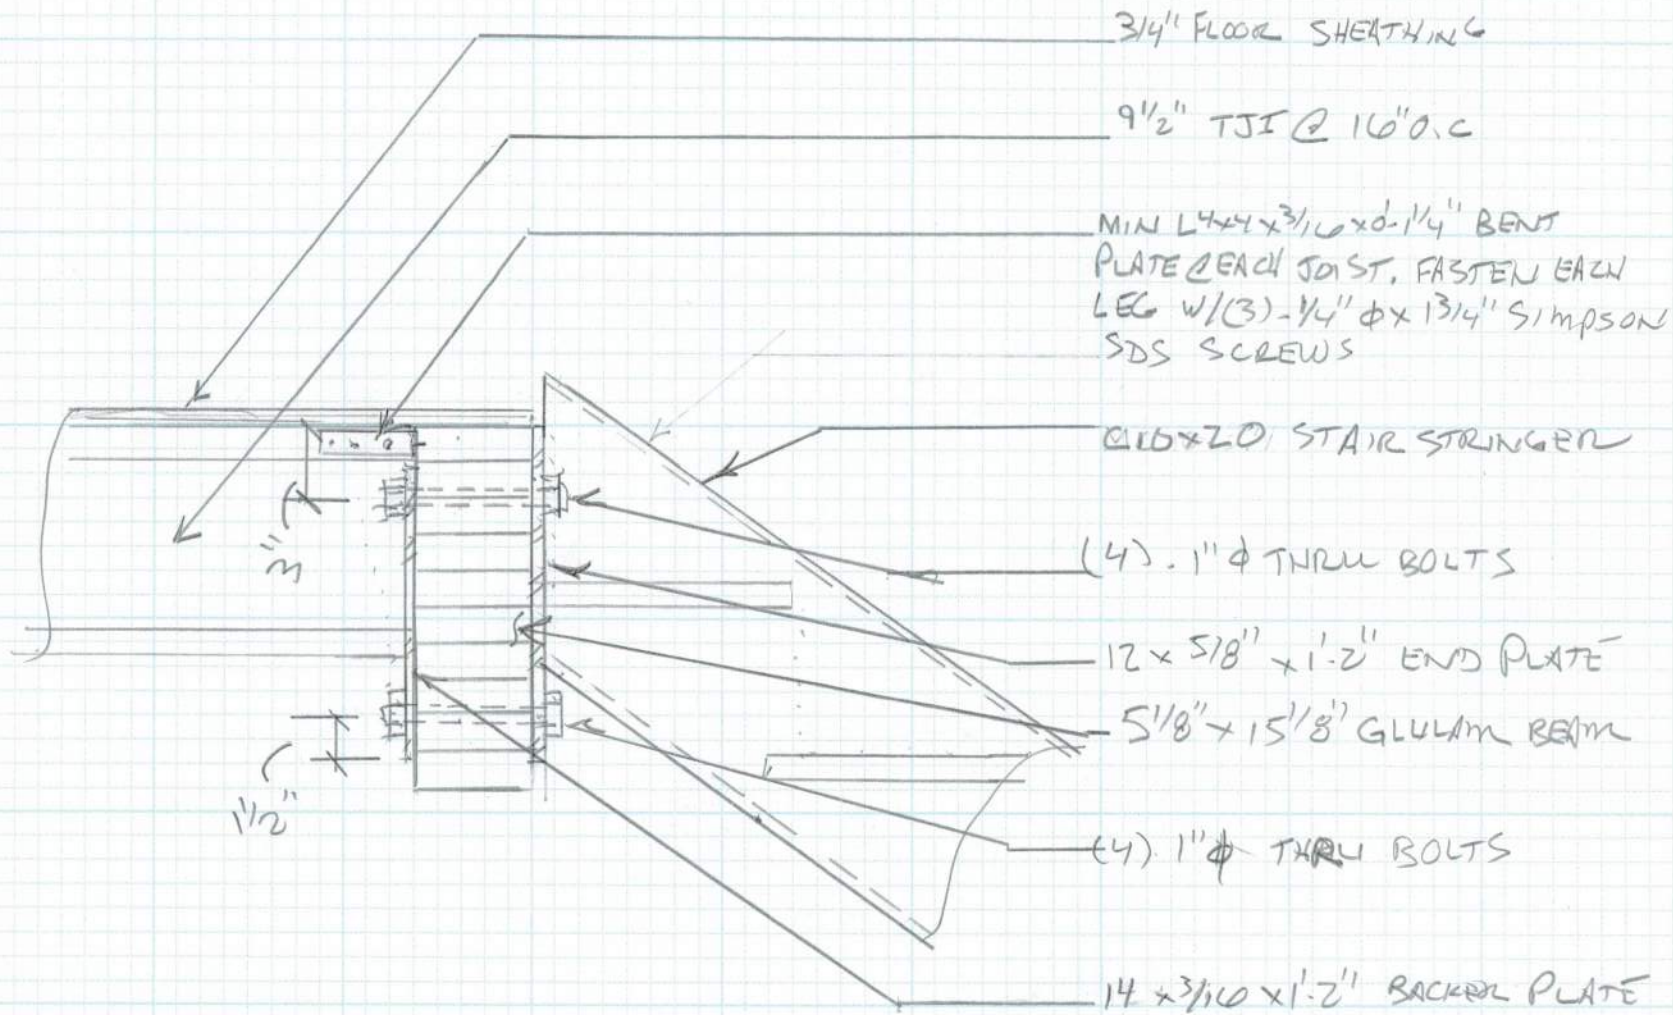 3/4" FLOOR SHEATHING
9 1/2" TJI @ 16" O.C
MIN L4x4x3/16x0'-1 1/4" BENT
PLATE @ EACH JOIST. FASTEN EACH
LEG W/(3)-1/4" φ x 1 3/4" SIMPSON
SDS SCREWS
C10x20 STAIR STRINGER
(4). 1" φ THRU BOLTS
3"
12 x 5/8" x 1'-2" END PLATE
5 1/8" x 15 1/8" GLULAM BEAM
1 1/2"
(4). 1" φ THRU BOLTS
14 x 3/16 x 1'-2" BACKER PLATE